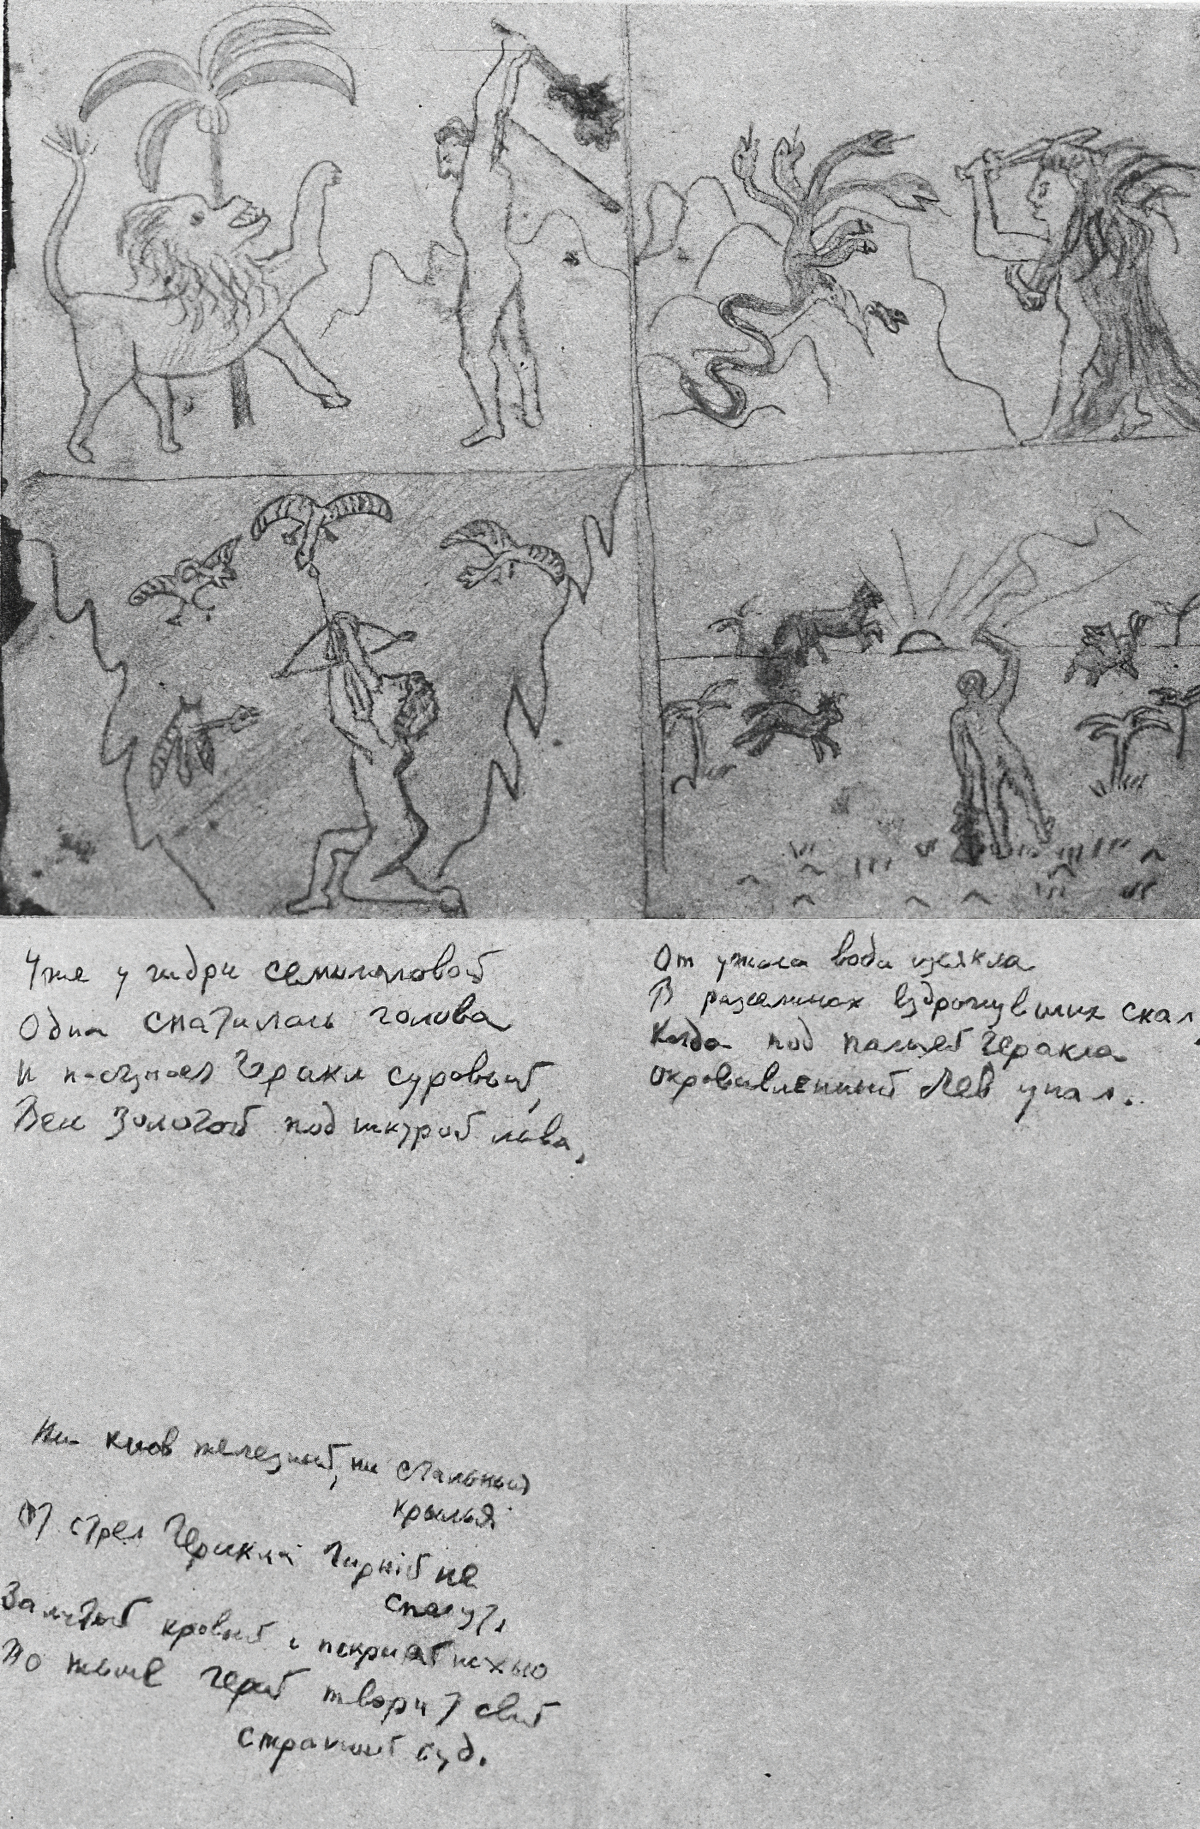 Уже у гидры семиглавой
Одна скатилась голова
И наступает Геракл суровый,
Весь золотой под шкурой льва,
От ужаса воды иссякла
В расселинах вздрогнувших скал
Когда под палицей Геракла
Окровавленный Лев упал.
Ни клюв железный, ни стальные
крылья
От стрел Геракла Гарпий не
спасут,
Залитый кровью и покрытый
Во тьме герой творит свой
страшный суд.